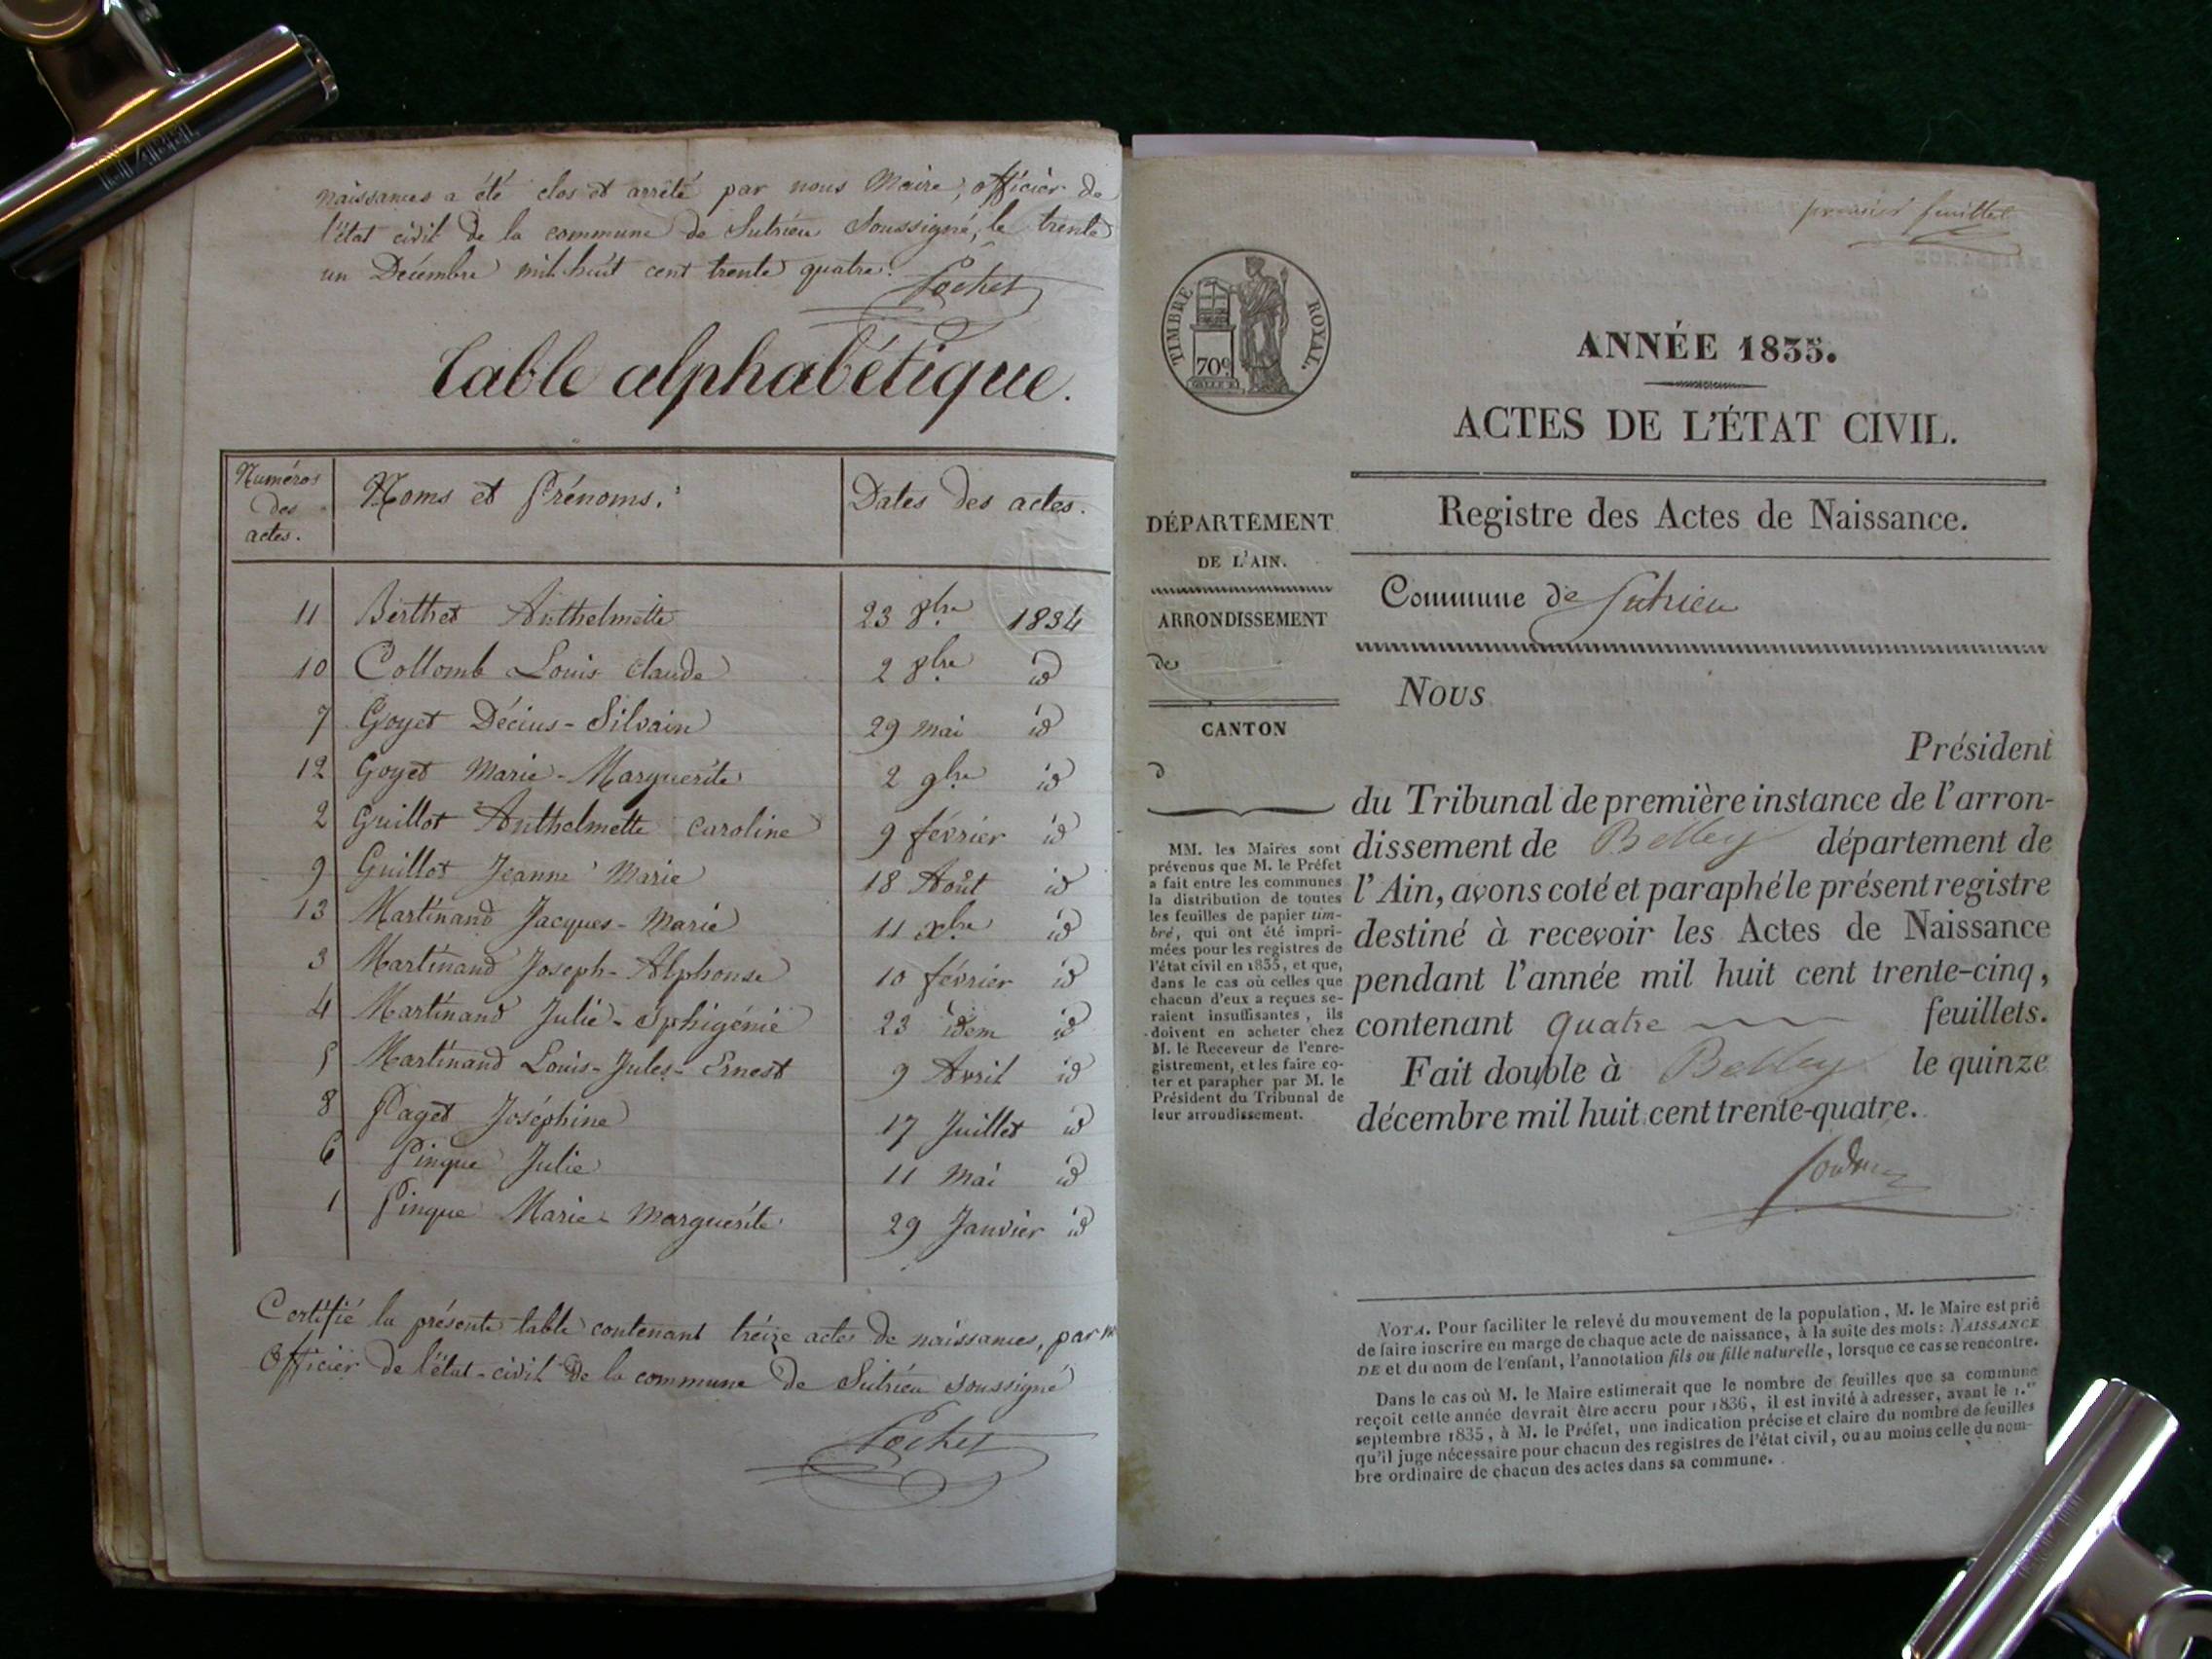 naissances a été clos et arrêté par nous Maire, officier de
l'état civil de la commune de Sutrieu soussigné, le trente
un Décembre mil huit cent trente quatre.
Pochet
Table alphabétique.
Numéros des actes. Noms et Prénoms. Dates des actes.
11 Berthet Anthelmette 23 8bre 1834
10 Collomb Louis Claude 2 8bre id
7 Goyet Décius-Silvain 29 mai id
12 Goyet Marie-Marguerite 2 9bre id
2 Guillot Anthelmette Caroline 9 février id
9 Guillot Jeanne Marie 18 Août id
13 Martinand Jacques-Marie 11 xbre id
3 Martinand Joseph-Alphonse 10 février id
4 Martinand Julie-Iphigénie 23 idem id
5 Martinand Louis-Jules-Ernest 9 Avril id
8 Paget Joséphine 17 Juillet id
6 Pingue Julie 11 Mai id
1 Pingue Marie-Marguerite 29 Janvier id
Certifié la présente table contenant treize actes de naissances, par
Officier de l'état-civil de la commune de Sutrieu soussigné
Pochet
premier feuillet
TIMBRE ROYAL.
70c
ANNÉE 1835.
ACTES DE L'ÉTAT CIVIL.
Registre des Actes de Naissance.
Commune de Sutrieu
DÉPARTEMENT
DE L'AIN.
ARRONDISSEMENT
de
CANTON
d
MM. les Maires sont
prévenus que M. le Préfet
a fait entre les communes
la distribution de toutes
les feuilles de papier tim-
bré, qui ont été impri-
mées pour les registres de
l'état civil en 1835, et que,
dans le cas où celles que
chacun d'eux a reçues se-
raient insuffisantes, ils
doivent en acheter chez
M. le Receveur de l'enre-
gistrement, et les faire co-
ter et parapher par M. le
Président du Tribunal de
leur arrondissement.
Nous
Président
du Tribunal de première instance de l'arron-
dissement de Belley département de
l'Ain, avons coté et paraphé le présent registre
destiné à recevoir les Actes de Naissance
pendant l'année mil huit cent trente-cinq,
contenant quatre feuillets.
Fait double à Belley le quinze
décembre mil huit cent trente-quatre.
NOTA. Pour faciliter le relevé du mouvement de la population, M. le Maire est prié
de faire inscrire en marge de chaque acte de naissance, à la suite des mots: NAISSANCE
DE et du nom de l'enfant, l'annotation fils ou fille naturelle, lorsque ce cas se rencontre.
Dans le cas où M. le Maire estimerait que le nombre de feuilles que sa commune
reçoit cette année devrait être accru pour 1836, il est invité à adresser, avant le 1.er
septembre 1835, à M. le Préfet, une indication précise et claire du nombre de feuilles
qu'il juge nécessaire pour chacun des registres de l'état civil, ou au moins celle du nom-
bre ordinaire de chacun des actes dans sa commune.